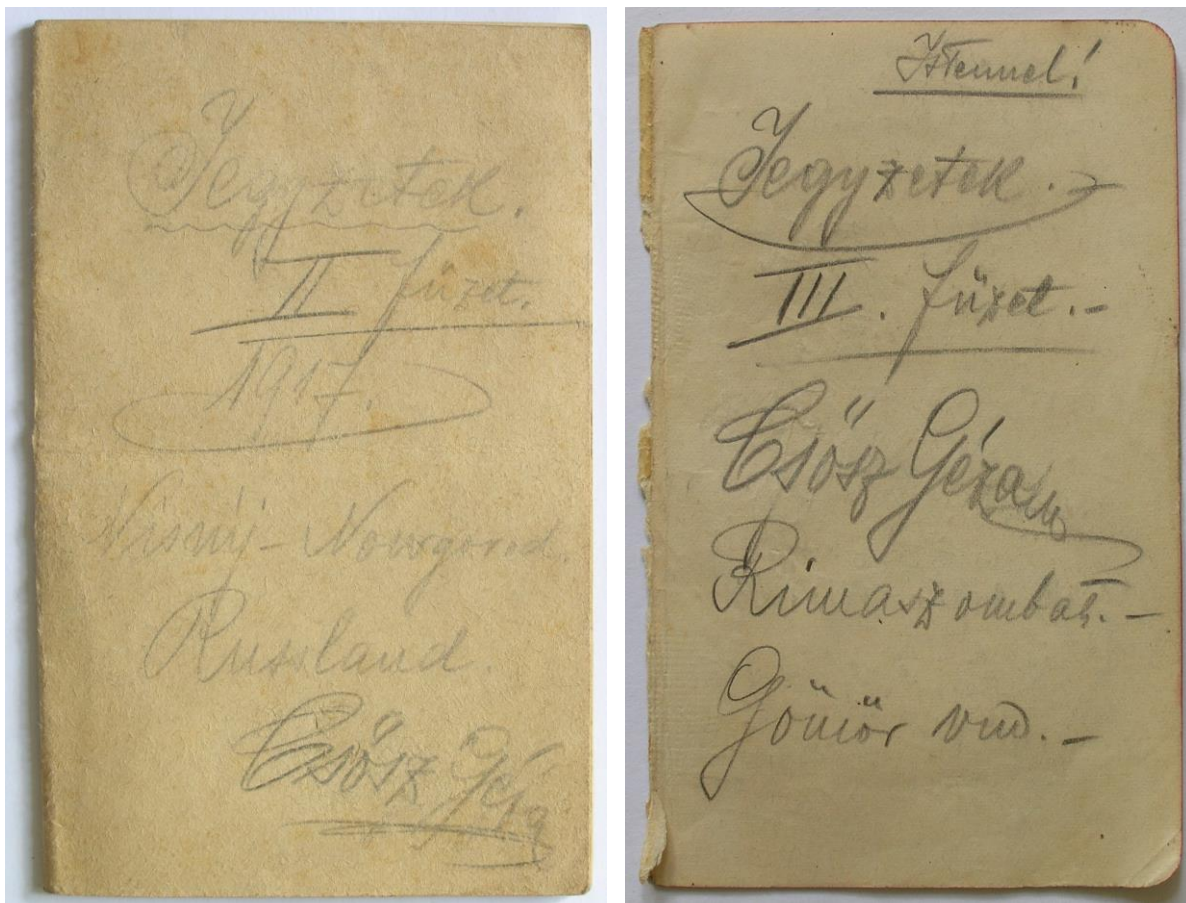 Jegyzetek.
II füzet.
1917.
Nisnÿ-Nowgorod.
Russland.
Csősz Géza
Istennel!
Jegyzetek.
III. füzet.-
Csősz Géza
Rimaszombat.-
Gömör vm.-